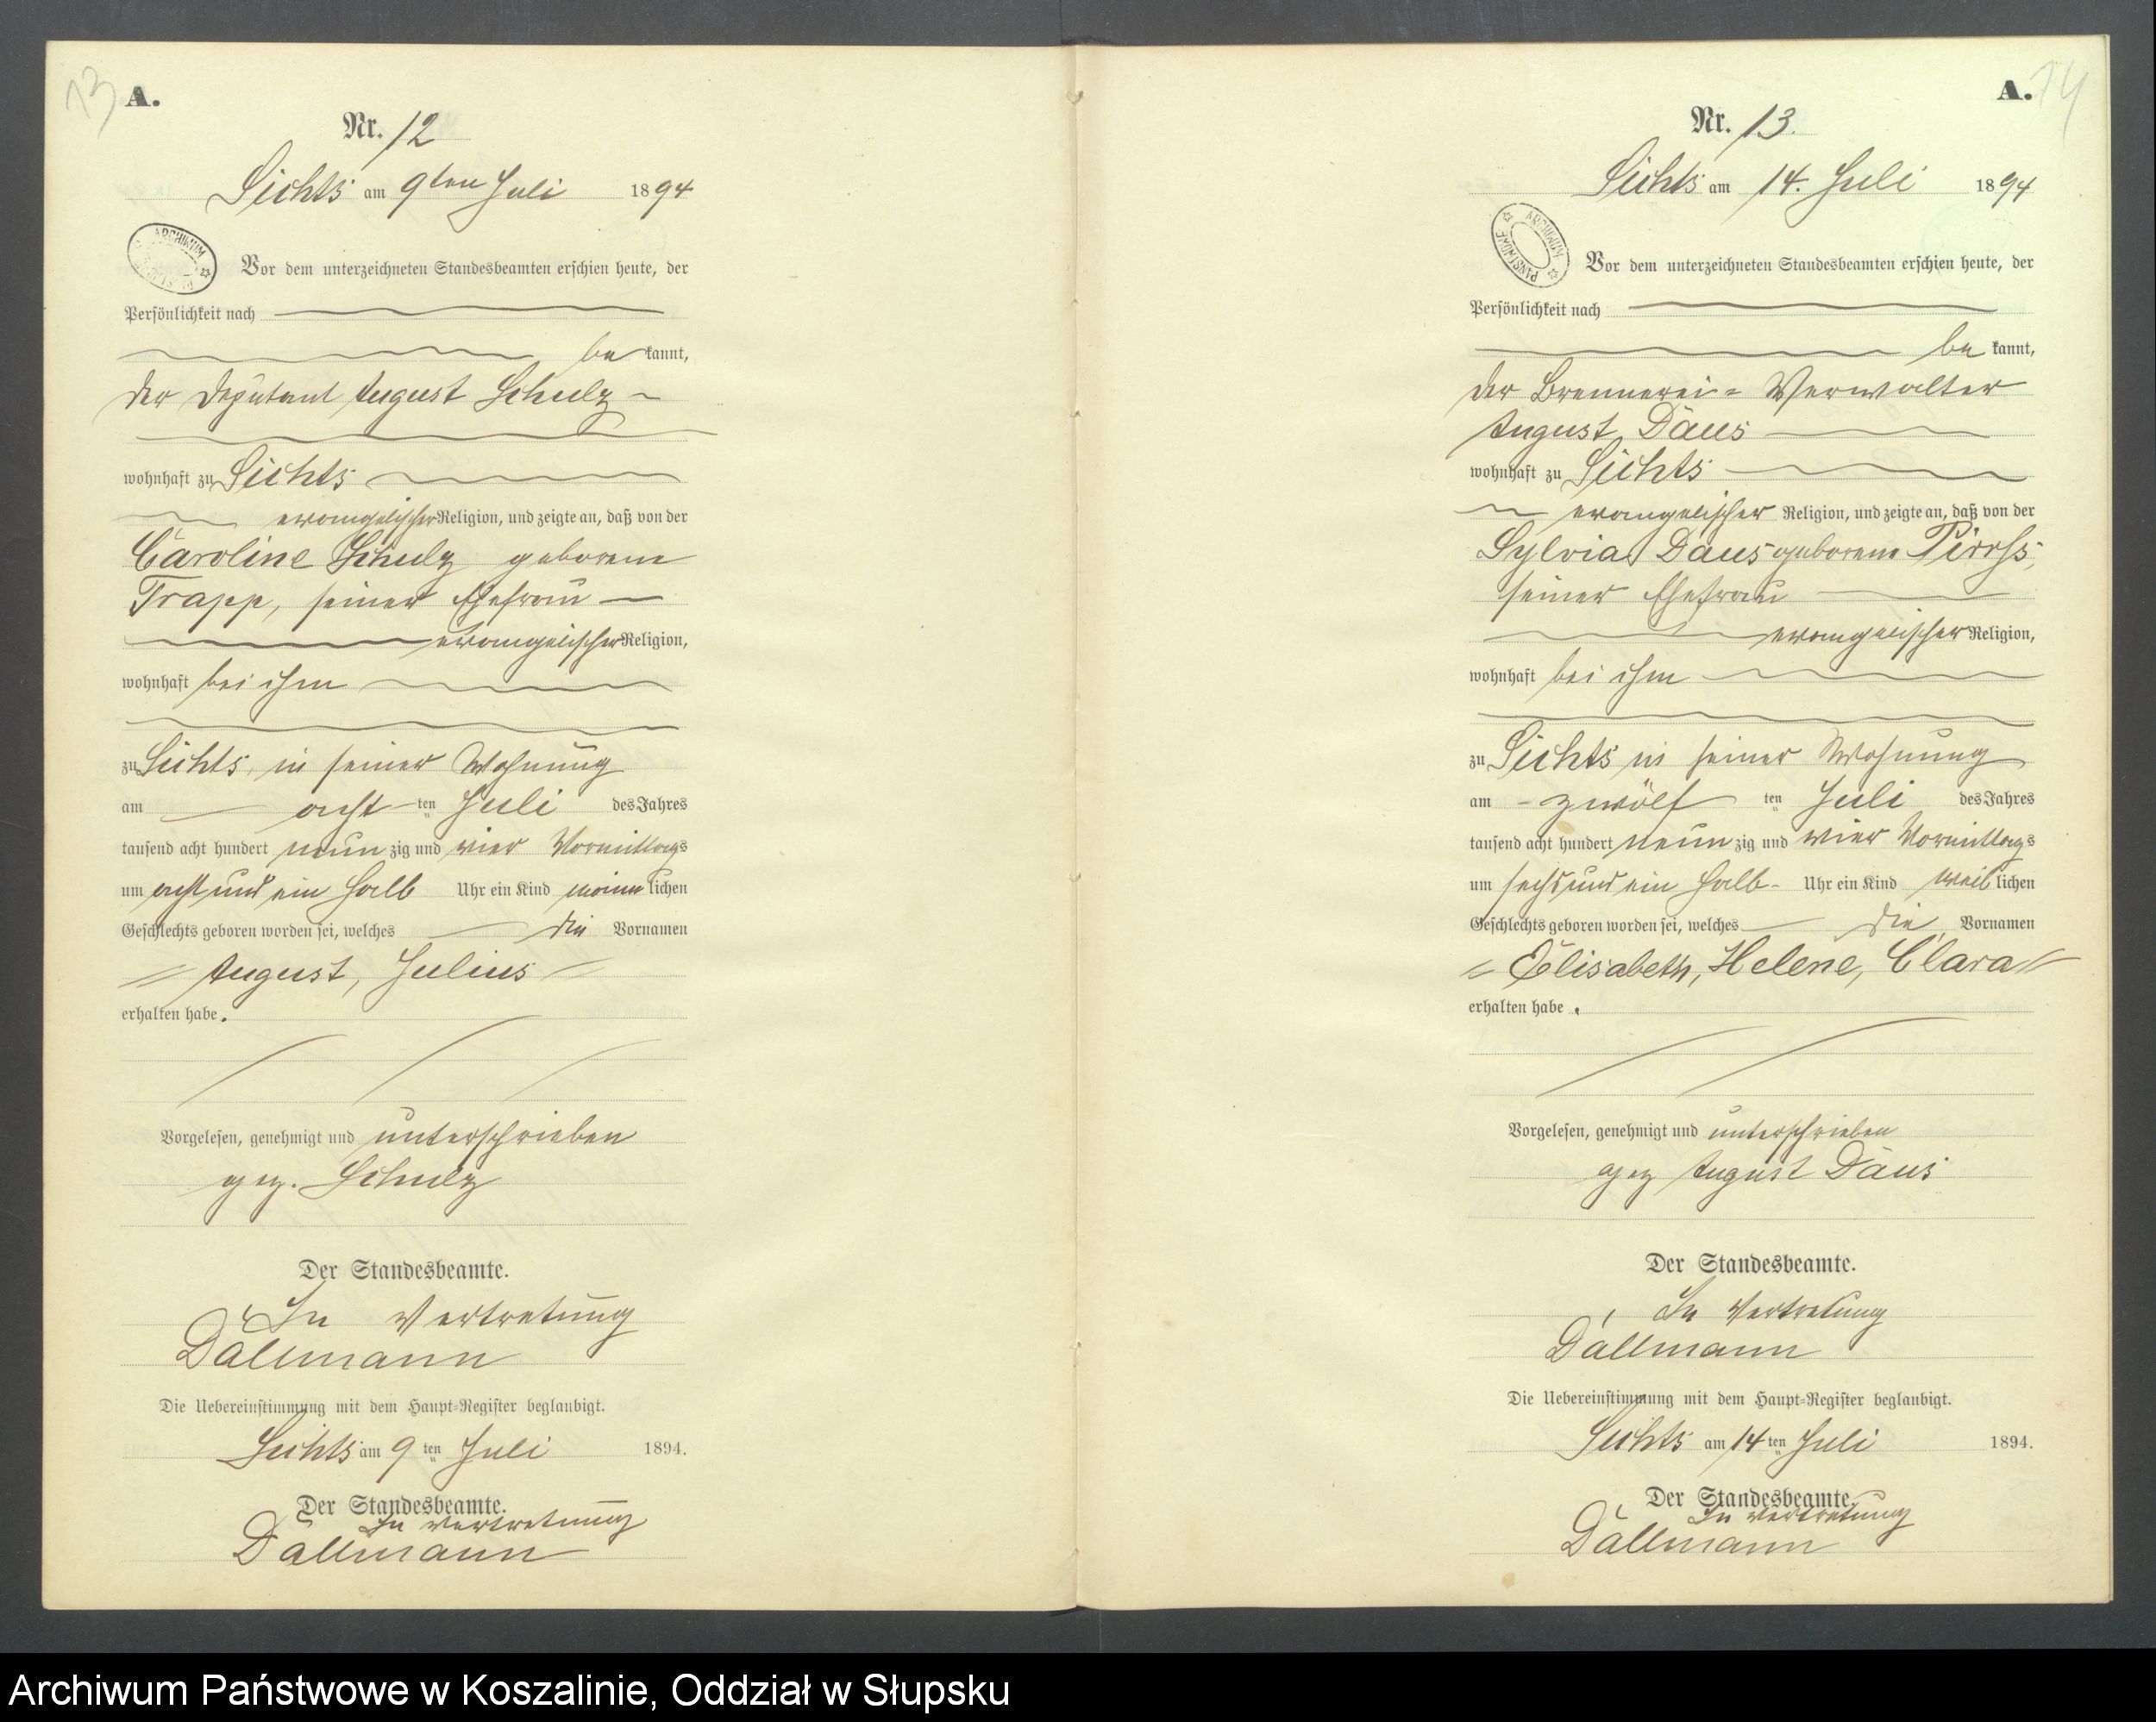 13
A.
Nr. 12
Sichts am 9ten Juli 1894
ARCHIWUM
Vor dem unterzeichneten Standesbeamten erschien heute, der
Persönlichkeit nach
be kannt,
der Deputant August Schulz
wohnhaft zu Sichts
evangelischer Religion, und zeigte an, daß von der
Caroline Schulz geborene
Trapp, seiner Ehefrau
evangelischer Religion,
wohnhaft bei ihm
zu Sichts, in seiner Wohnung
am acht ten Juli des Jahres
tausend acht hundert neun zig und vier Vormittags
um acht und ein halb Uhr ein Kind männ lichen
Geschlechts geboren worden sei, welches die Vornamen
August, Julius
erhalten habe.
Vorgelesen, genehmigt und unterschrieben
gez. Schulz
Der Standesbeamte.
In Vertretung
Dallmann
Die Uebereinstimmung mit dem Haupt-Register beglaubigt.
Sichts am 9 ten Juli 1894.
Der Standesbeamte.
In Vertretung
Dallmann
A. 14
Nr. 13.
Sichts am 14. Juli 1894
ARCHIWUM PAŃSTWOWE
Vor dem unterzeichneten Standesbeamten erschien heute, der
Persönlichkeit nach
be kannt,
der Brennerei-Verwalter
August Daus
wohnhaft zu Sichts
evangelischer Religion, und zeigte an, daß von der
Sylvia Daus geborene
seiner Ehefrau
evangelischer Religion,
wohnhaft bei ihm
zu Sichts in seiner Wohnung
am zwölf ten Juli des Jahres
tausend acht hundert neun zig und vier Vormittags
um sechs und ein halb Uhr ein Kind weib lichen
Geschlechts geboren worden sei, welches die Vornamen
Elisabeth, Helene, Clara
erhalten habe.
Vorgelesen, genehmigt und unterschrieben
gez August Daus
Der Standesbeamte.
In Vertretung
Dallmann
Die Uebereinstimmung mit dem Haupt-Register beglaubigt.
Sichts am 14 ten Juli 1894.
Der Standesbeamte.
In Vertretung
Dallmann
Archiwum Państwowe w Koszalinie, Oddział w Słupsku